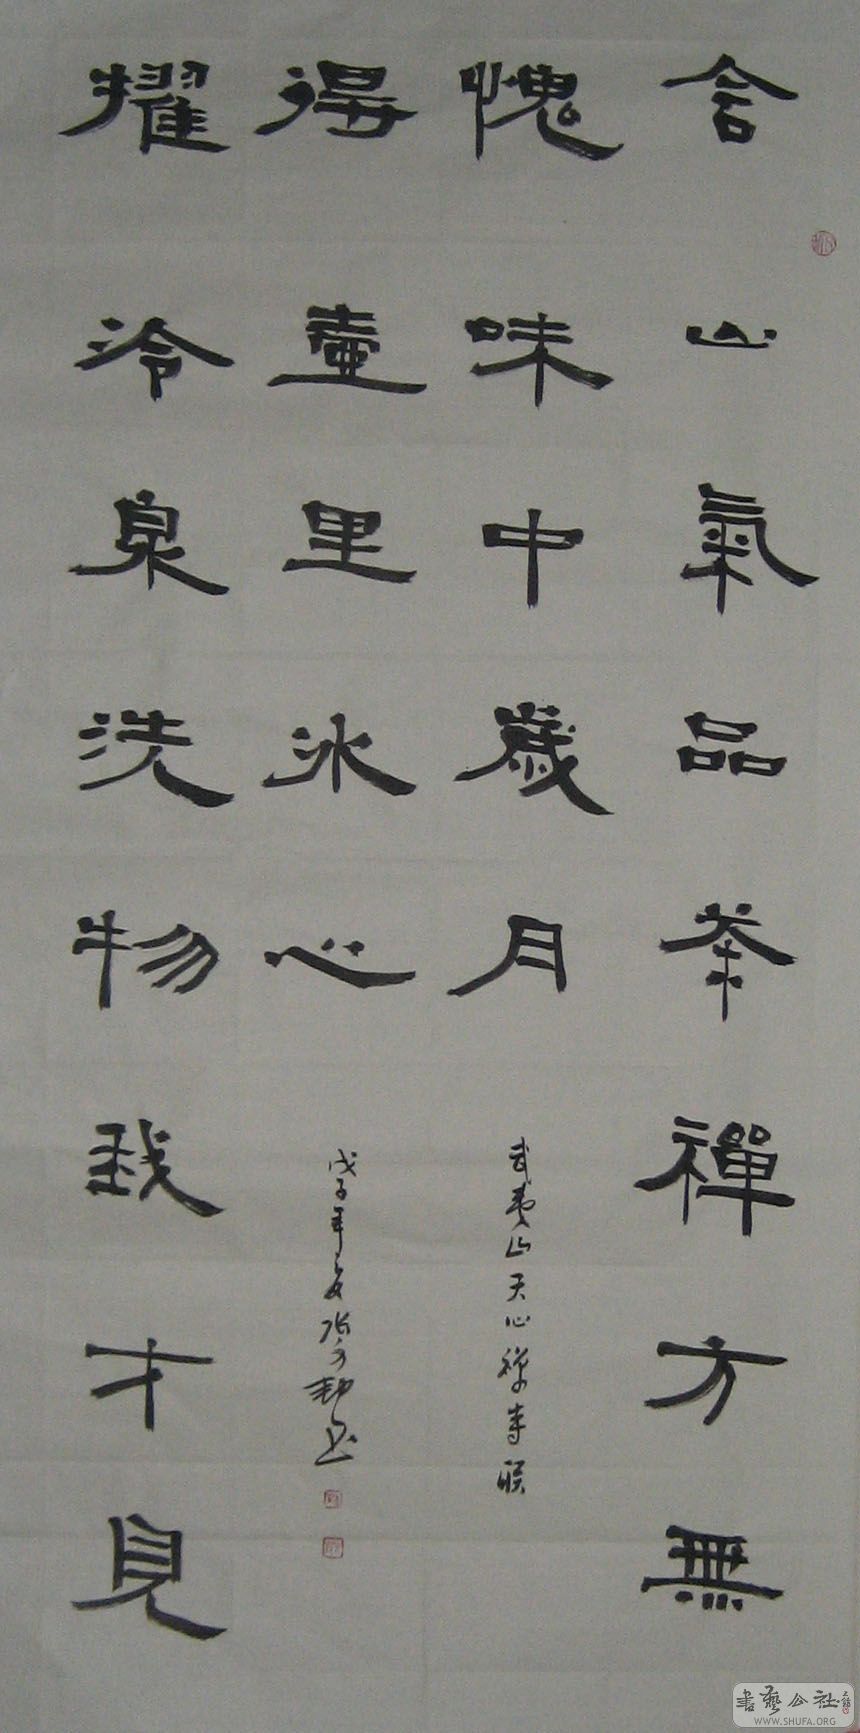 含山氣品茶禪方無
愧味中歲月
武夷山天心禅寺联
擢冷泉洗物我才見
得壺里冰心
戊子年夏 书
書藝公社
WWW.SHUFA.ORG